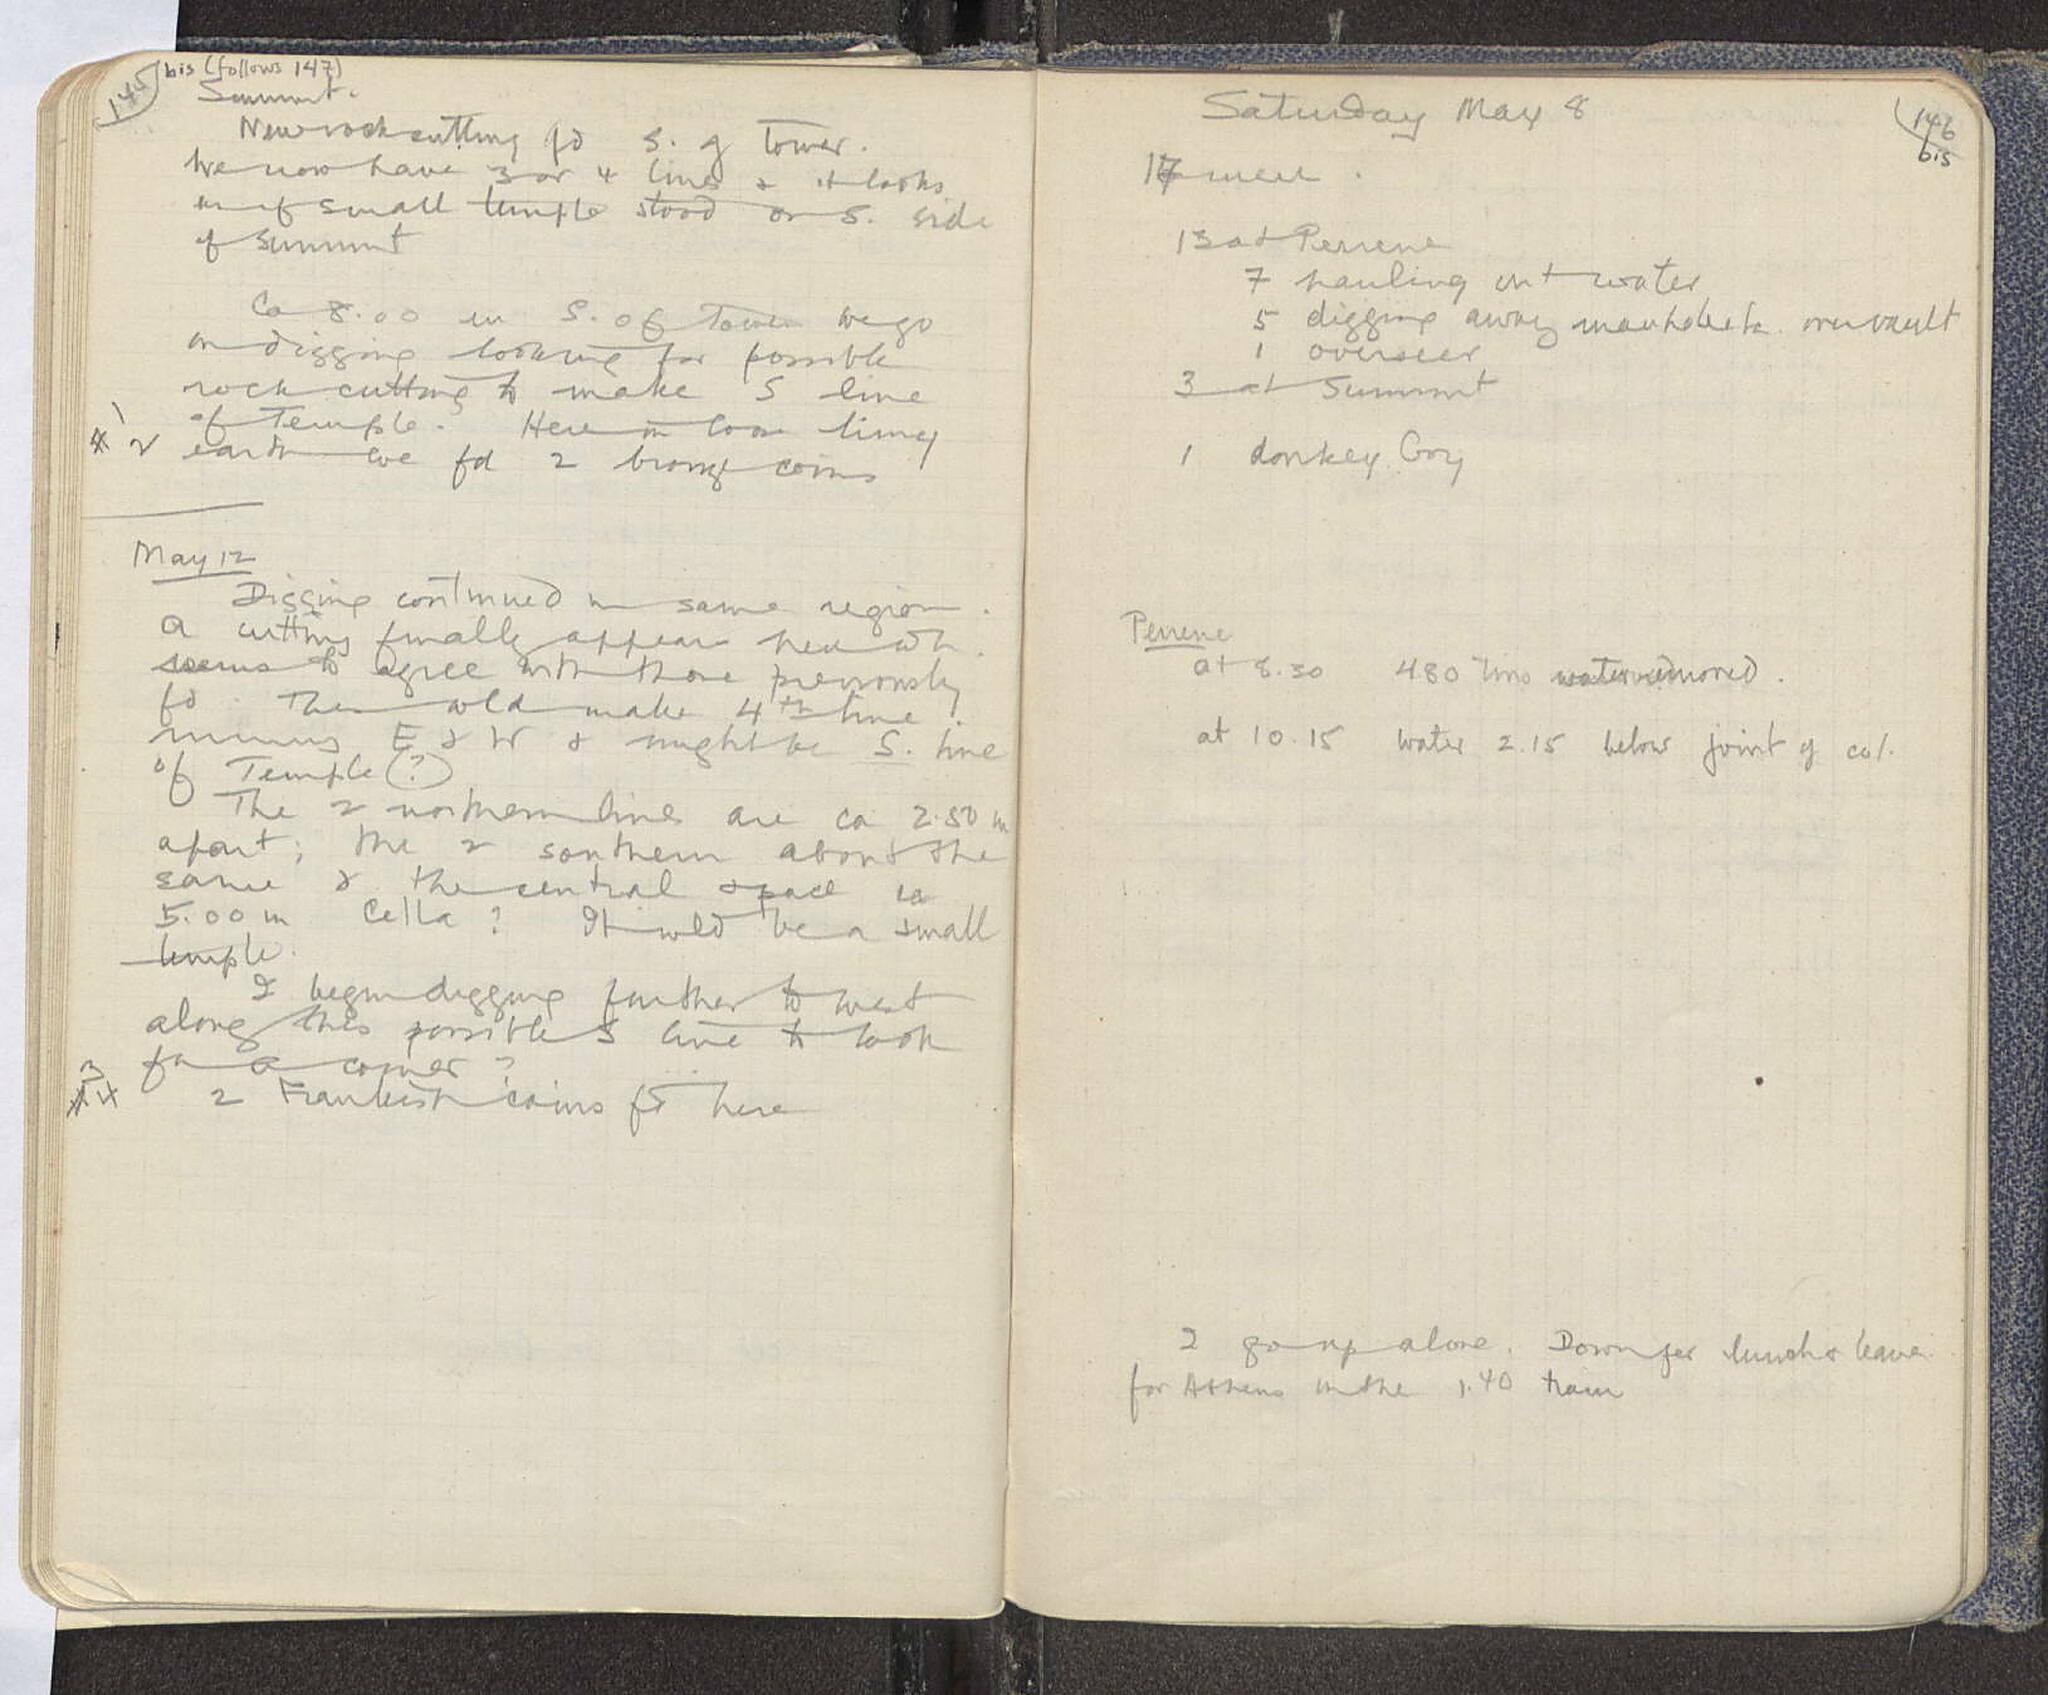 145 bis (follows 147)
Summit.
New rock cutting fd S. of Tower.
We now have 3 or 4 lines & it looks
as if small temple stood on S. side
of Summit
Ca 8.00 m S. of Tower we go
on digging looking for possible
rock cutting to make S line
of Temple. Here in loose limey
# 1 2 earth we fd 2 bronze coins
May 12
Digging continued in same region.
A cutting finally appears here wh.
seems to agree with those previously
fd. This wld make 4th line
running E & W & might be S. line
of Temple (?)
The 2 northern lines are ca 2.50 m
apart; the 2 southern about the
same & the central space is
5.00 m Cella? It wld be a small
temple.
I begin digging further to west
along this possible S line to look
for a corner?
# 3 4 2 Frankish coins fd here
Saturday May 8
146 bis
17 men.
13 at Peirene
7 hauling out water
5 digging away over vault
1 overseer
3 at Summit
1 donkey boy
Peirene
at 8.30 480 tins water removed.
at 10.15 water 2.15 below joint of col.
I go up alone. Down for lunch & leave
for Athens on the 1.40 train